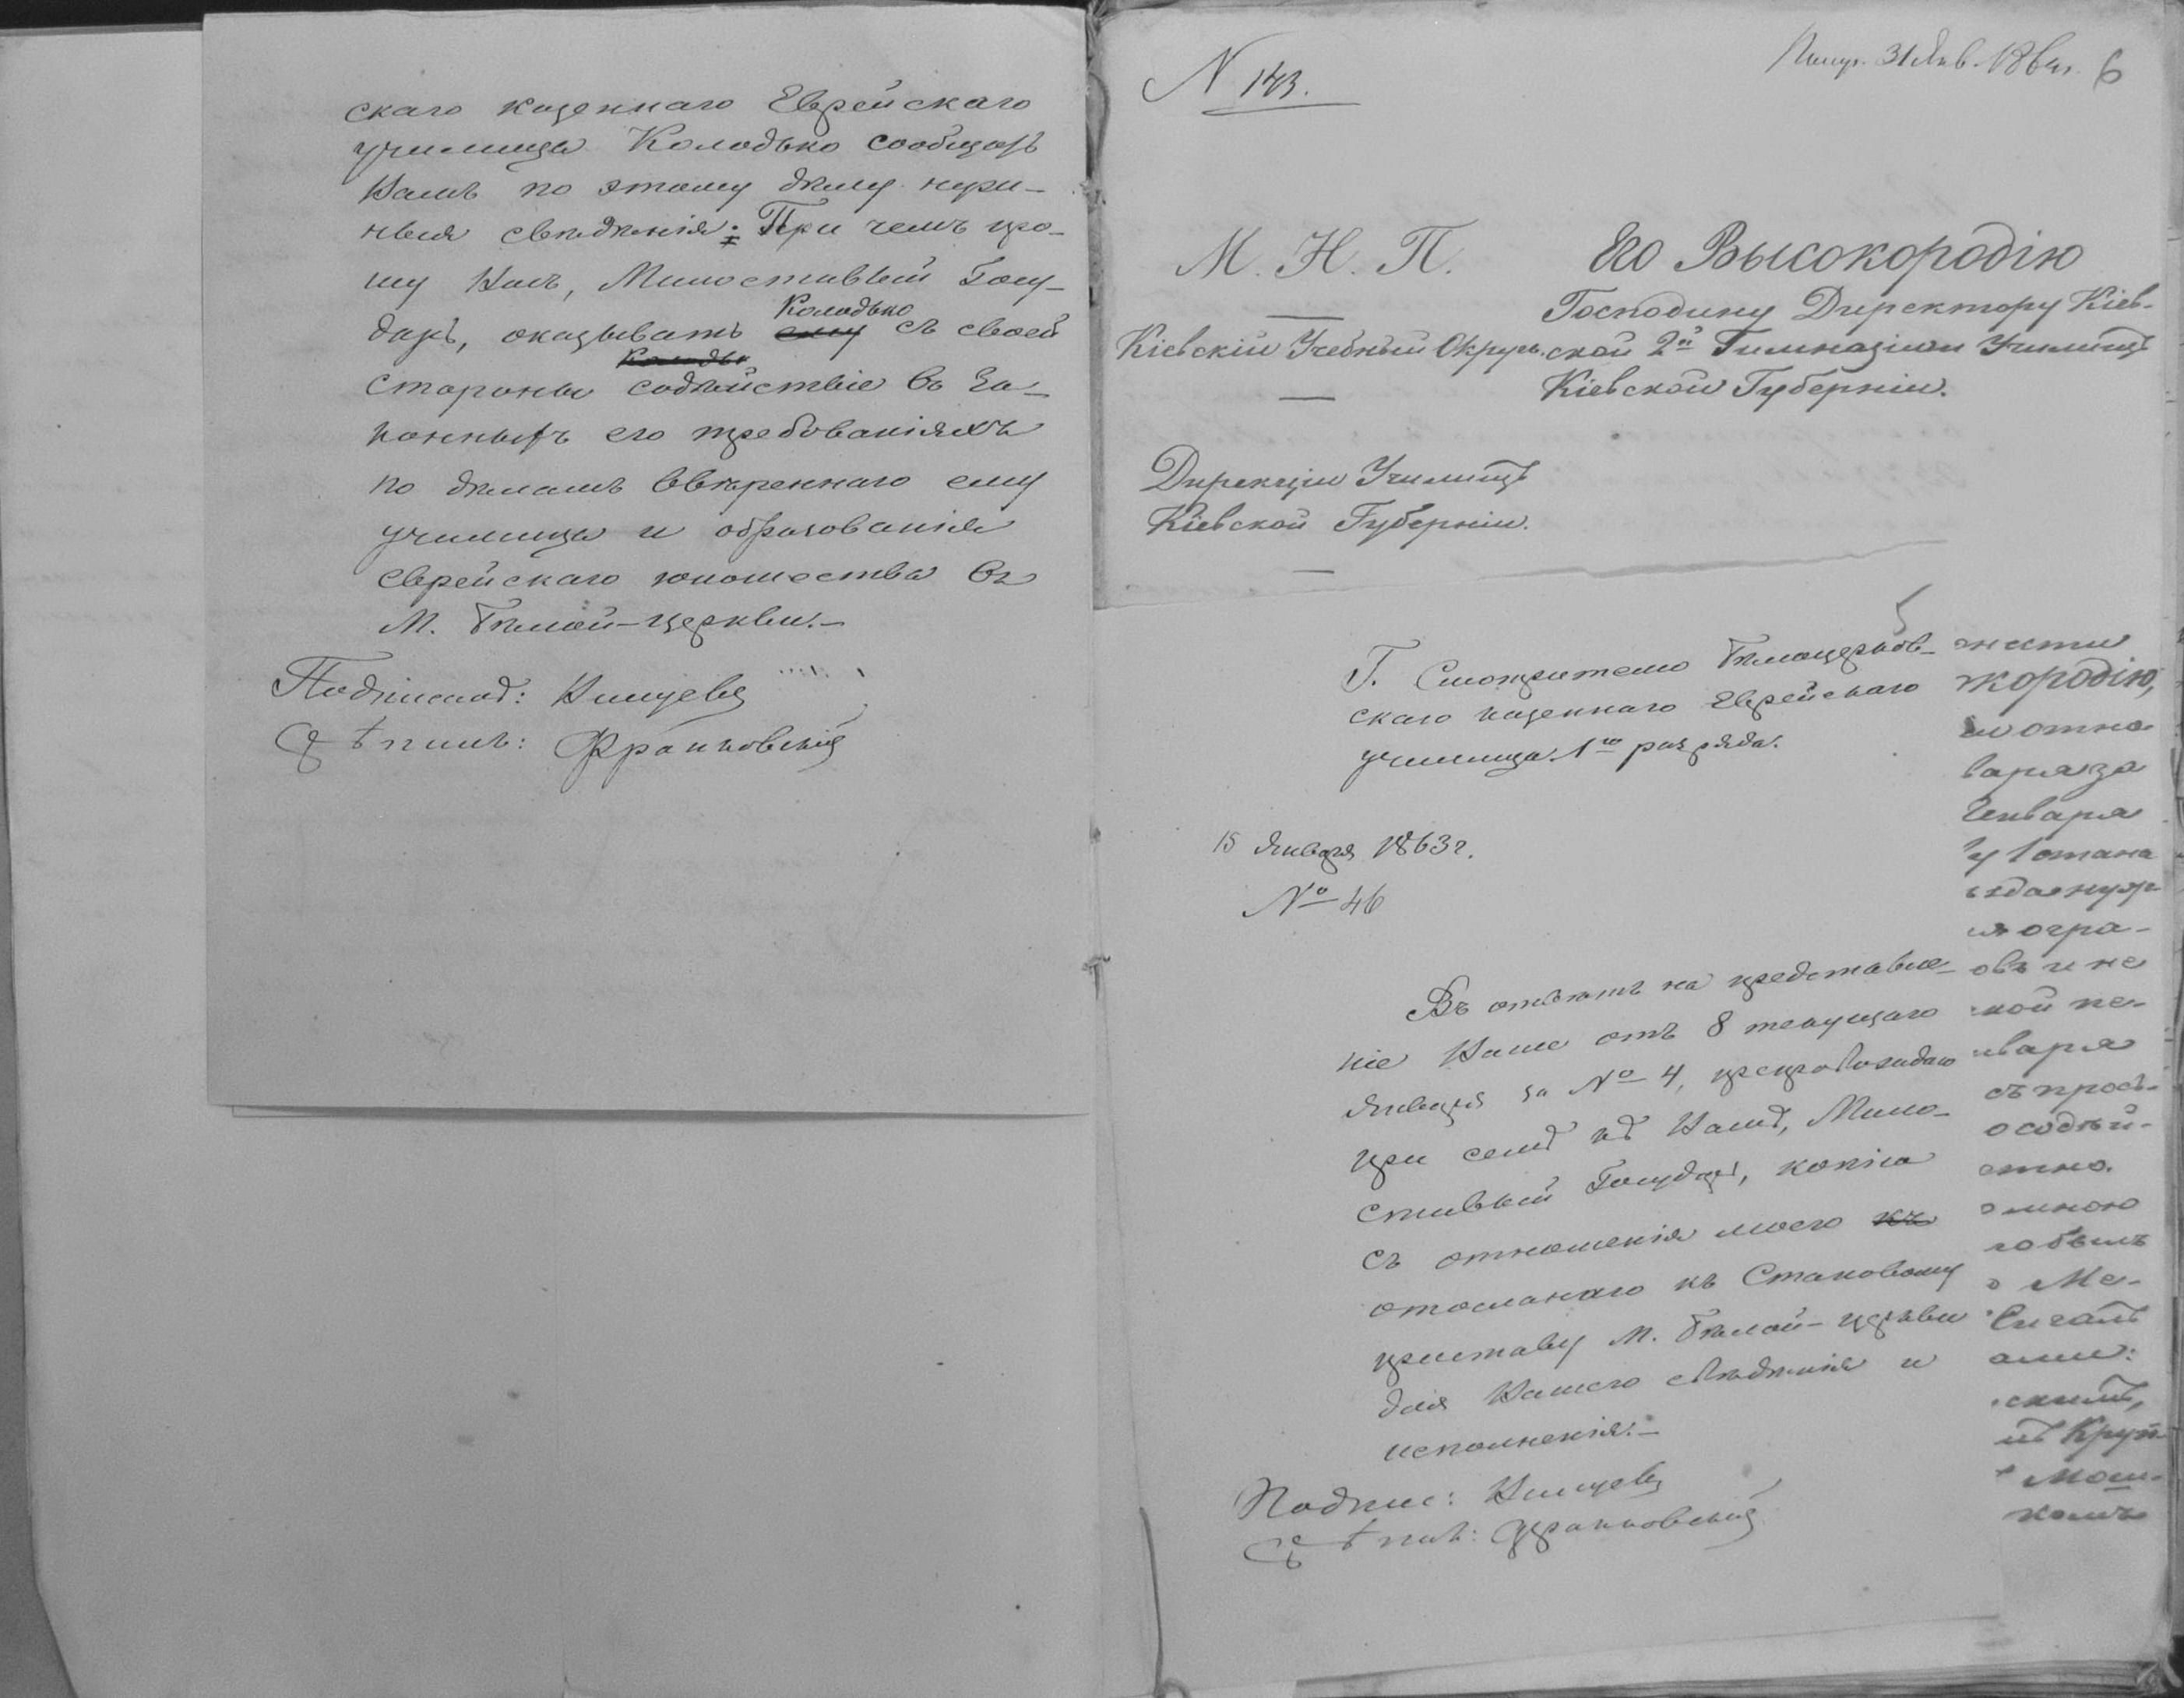 скаго казеннаго Еврейскаго
училища Колодько сообщатъ
Вамъ по этому дѣлу нуж-
ныя свѣдѣнія. При чемъ про-
шу Васъ, Милостивый Госу-
Колодько
дарь, оказывать ему съ своей
Колодьк
стороны содѣйствіе въ за-
конныхъ его требованіяхъ
по дѣламъ ввѣреннаго ему
училища и образованія
еврейскаго юношества въ
М. Бѣлой-церкви.–
Подписалъ:
Скрѣпилъ: Франковскій
N 143.
Получ. 31 Янв. 186 6
М. Н. П.
Кіевскій Учебный Округъ.
Дирекціи Училищъ
Кіевской Губерніи.
Его Высокородію
Господину Директору Кіев-
ской 2й Гимназіи и Училищъ
Кіевской Губерніи.
5
Г. Смотрителю Бѣлоцерков-
скаго казеннаго Еврейскаго
училища 1го разряда.
15 Января 1863 г.
№ 46
Въ отвѣтъ на представле-
ніе Ваше отъ 8 текущаго
Января за № 4, препровождаю
при семъ къ Вамъ, Мило-
стивый Государь, копію
съ отношенія моего къ
отосланаго къ Становому
приставу М. Бѣлой-церкви
для Вашего свѣдѣнія и
исполненія.–
Подпис:
Скрѣпилъ: Франковскій
жороdію,
отно
варя за
Генваря
огра-
овъ и не
кой пе-
нваря
съ прось-
о содѣй-
мною
Ме-
скимъ,
Круп-
Мош-
комъ